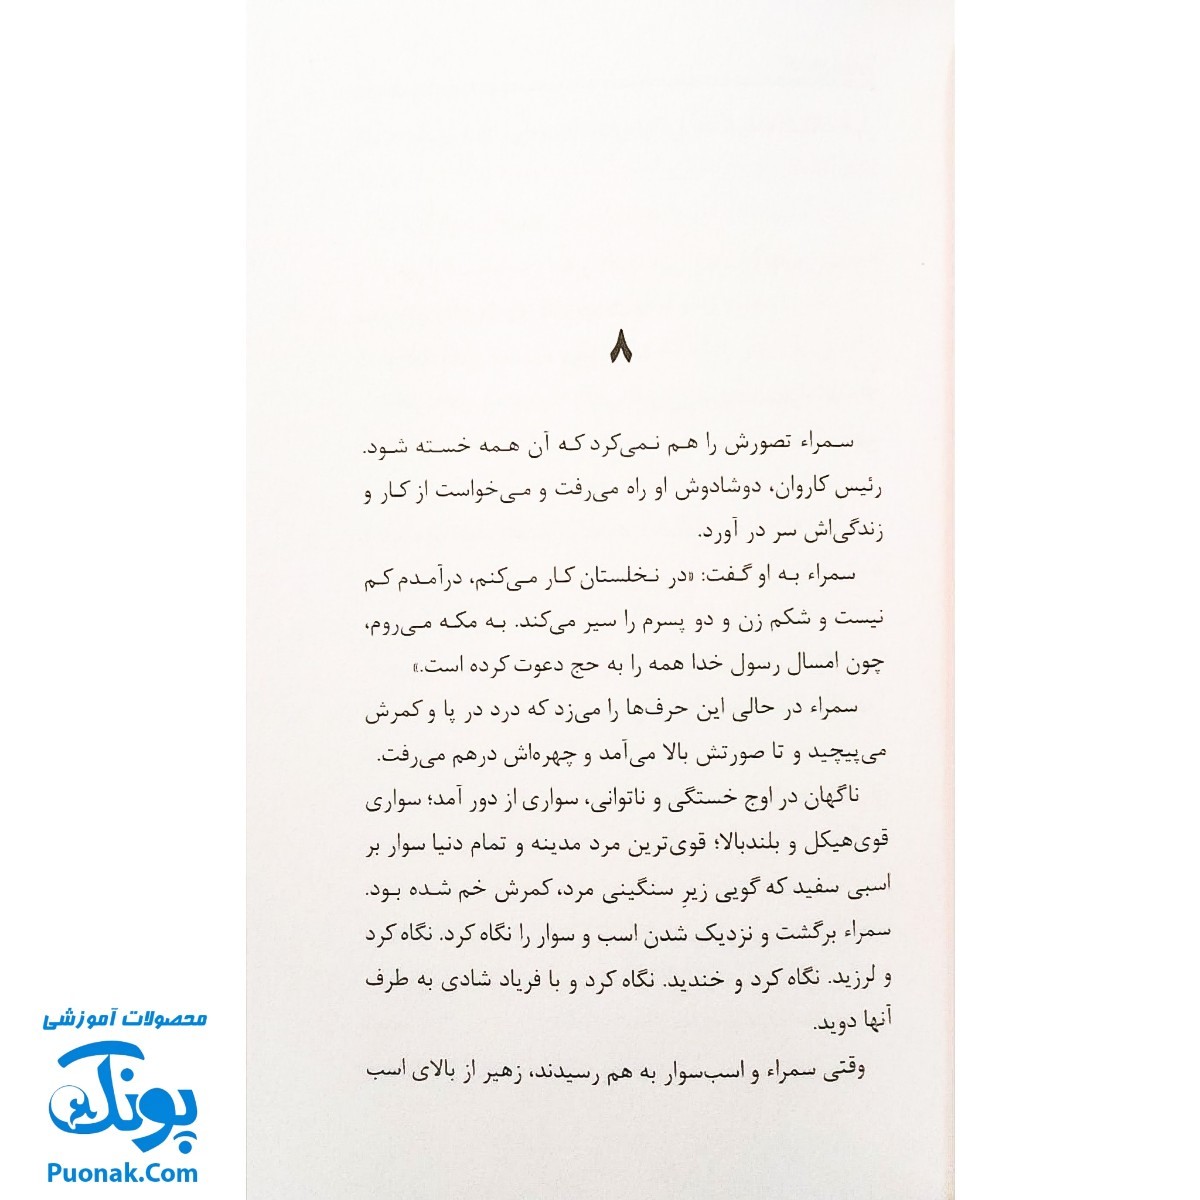 ۸
سمراء تصورش را هم نمی‌کرد که آن همه خسته شود.
رئیس کاروان، دوشادوش او راه می‌رفت و می‌خواست از کار و
زندگی‌اش سر در آورد.
سمراء به او گفت: «در نخلستان کار می‌کنم، درآمدم کم
نیست و شکم زن و دو پسرم را سیر می‌کند. به مکه می‌روم،
چون امسال رسول خدا همه را به حج دعوت کرده است.»
سمراء در حالی این حرف‌ها را می‌زد که درد در پا و کمرش
می‌پیچید و تا صورتش بالا می‌آمد و چهره‌اش درهم می‌رفت.
ناگهان در اوج خستگی و ناتوانی، سواری از دور آمد؛ سواری
قوی‌هیکل و بلندبالا؛ قوی‌ترین مرد مدینه و تمام دنیا سوار بر
اسبی سفید که گویی زیرِ سنگینی مرد، کمرش خم شده بود.
سمراء برگشت و نزدیک شدن اسب و سوار را نگاه کرد. نگاه کرد
و لرزید. نگاه کرد و خندید. نگاه کرد و با فریاد شادی به طرف
آنها دوید.
وقتی سمراء و اسب‌سوار به هم رسیدند، زهیر از بالای اسب
محصولات آموزشی
پونک
Puonak.Com